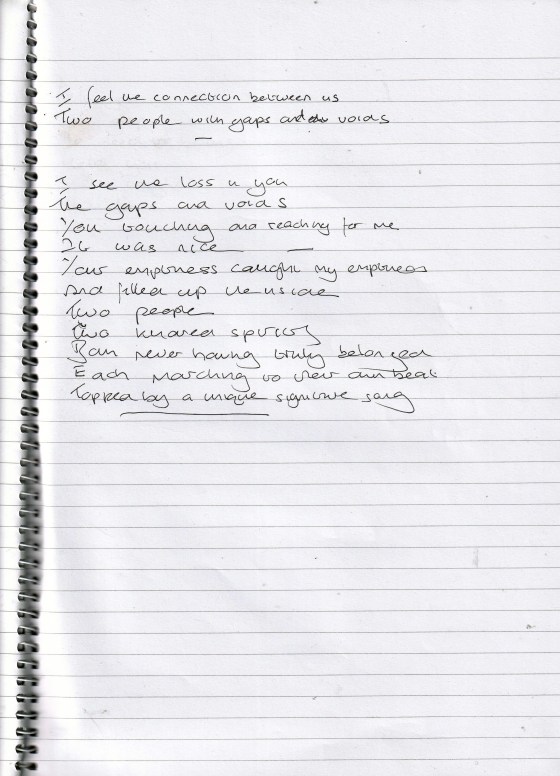 I feel the connection between us
Two people with gaps and voids
I see the loss in you
The gaps and voids
You touching and reaching for me
It was nice
Your emptiness caught my emptiness
And filled up the inside
Two people
Two kindred spirits
Both never having truly belonged
Each marching to their own beat
Topped by a unique signature song